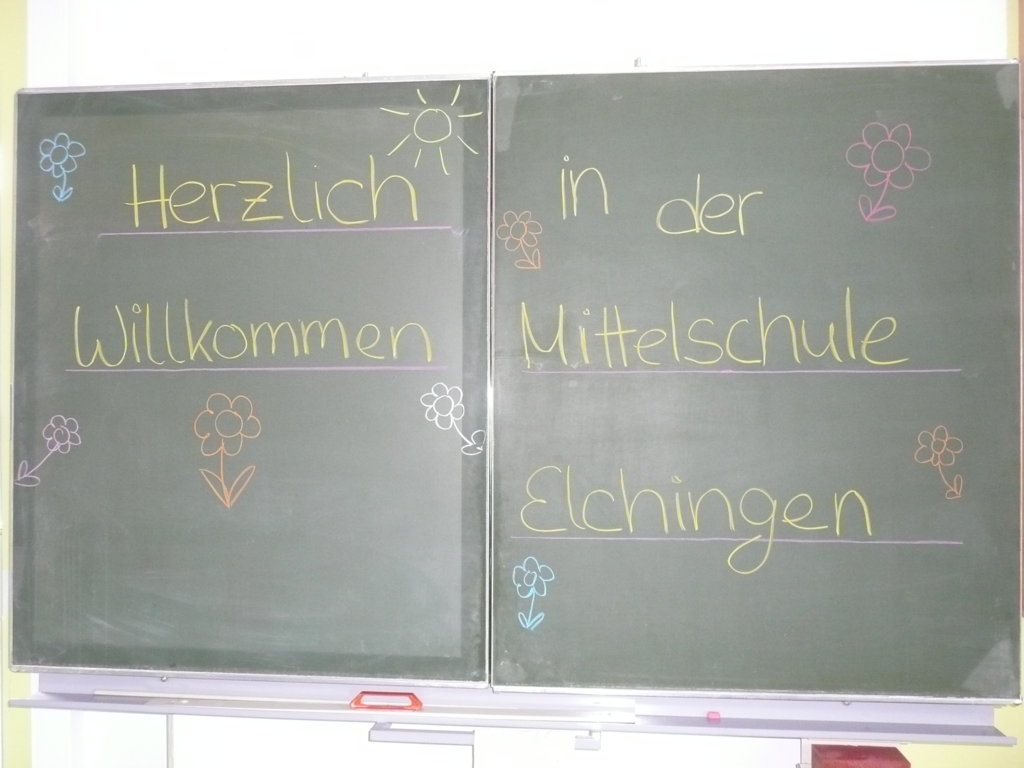 Herzlich
Willkommen
in der
Mittelschule
Elchingen